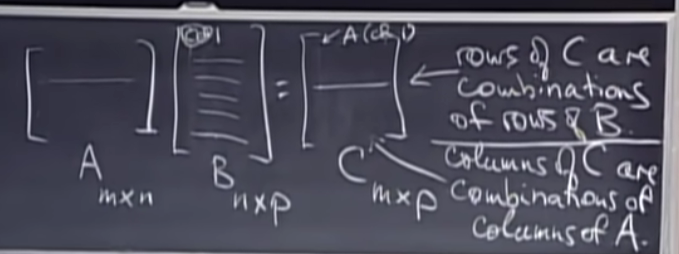 col 1
A (col 1)
=
A
m×n
B
n×p
C
m×p
rows of C are
combinations
of rows of B.
columns of C are
combinations of
columns of A.